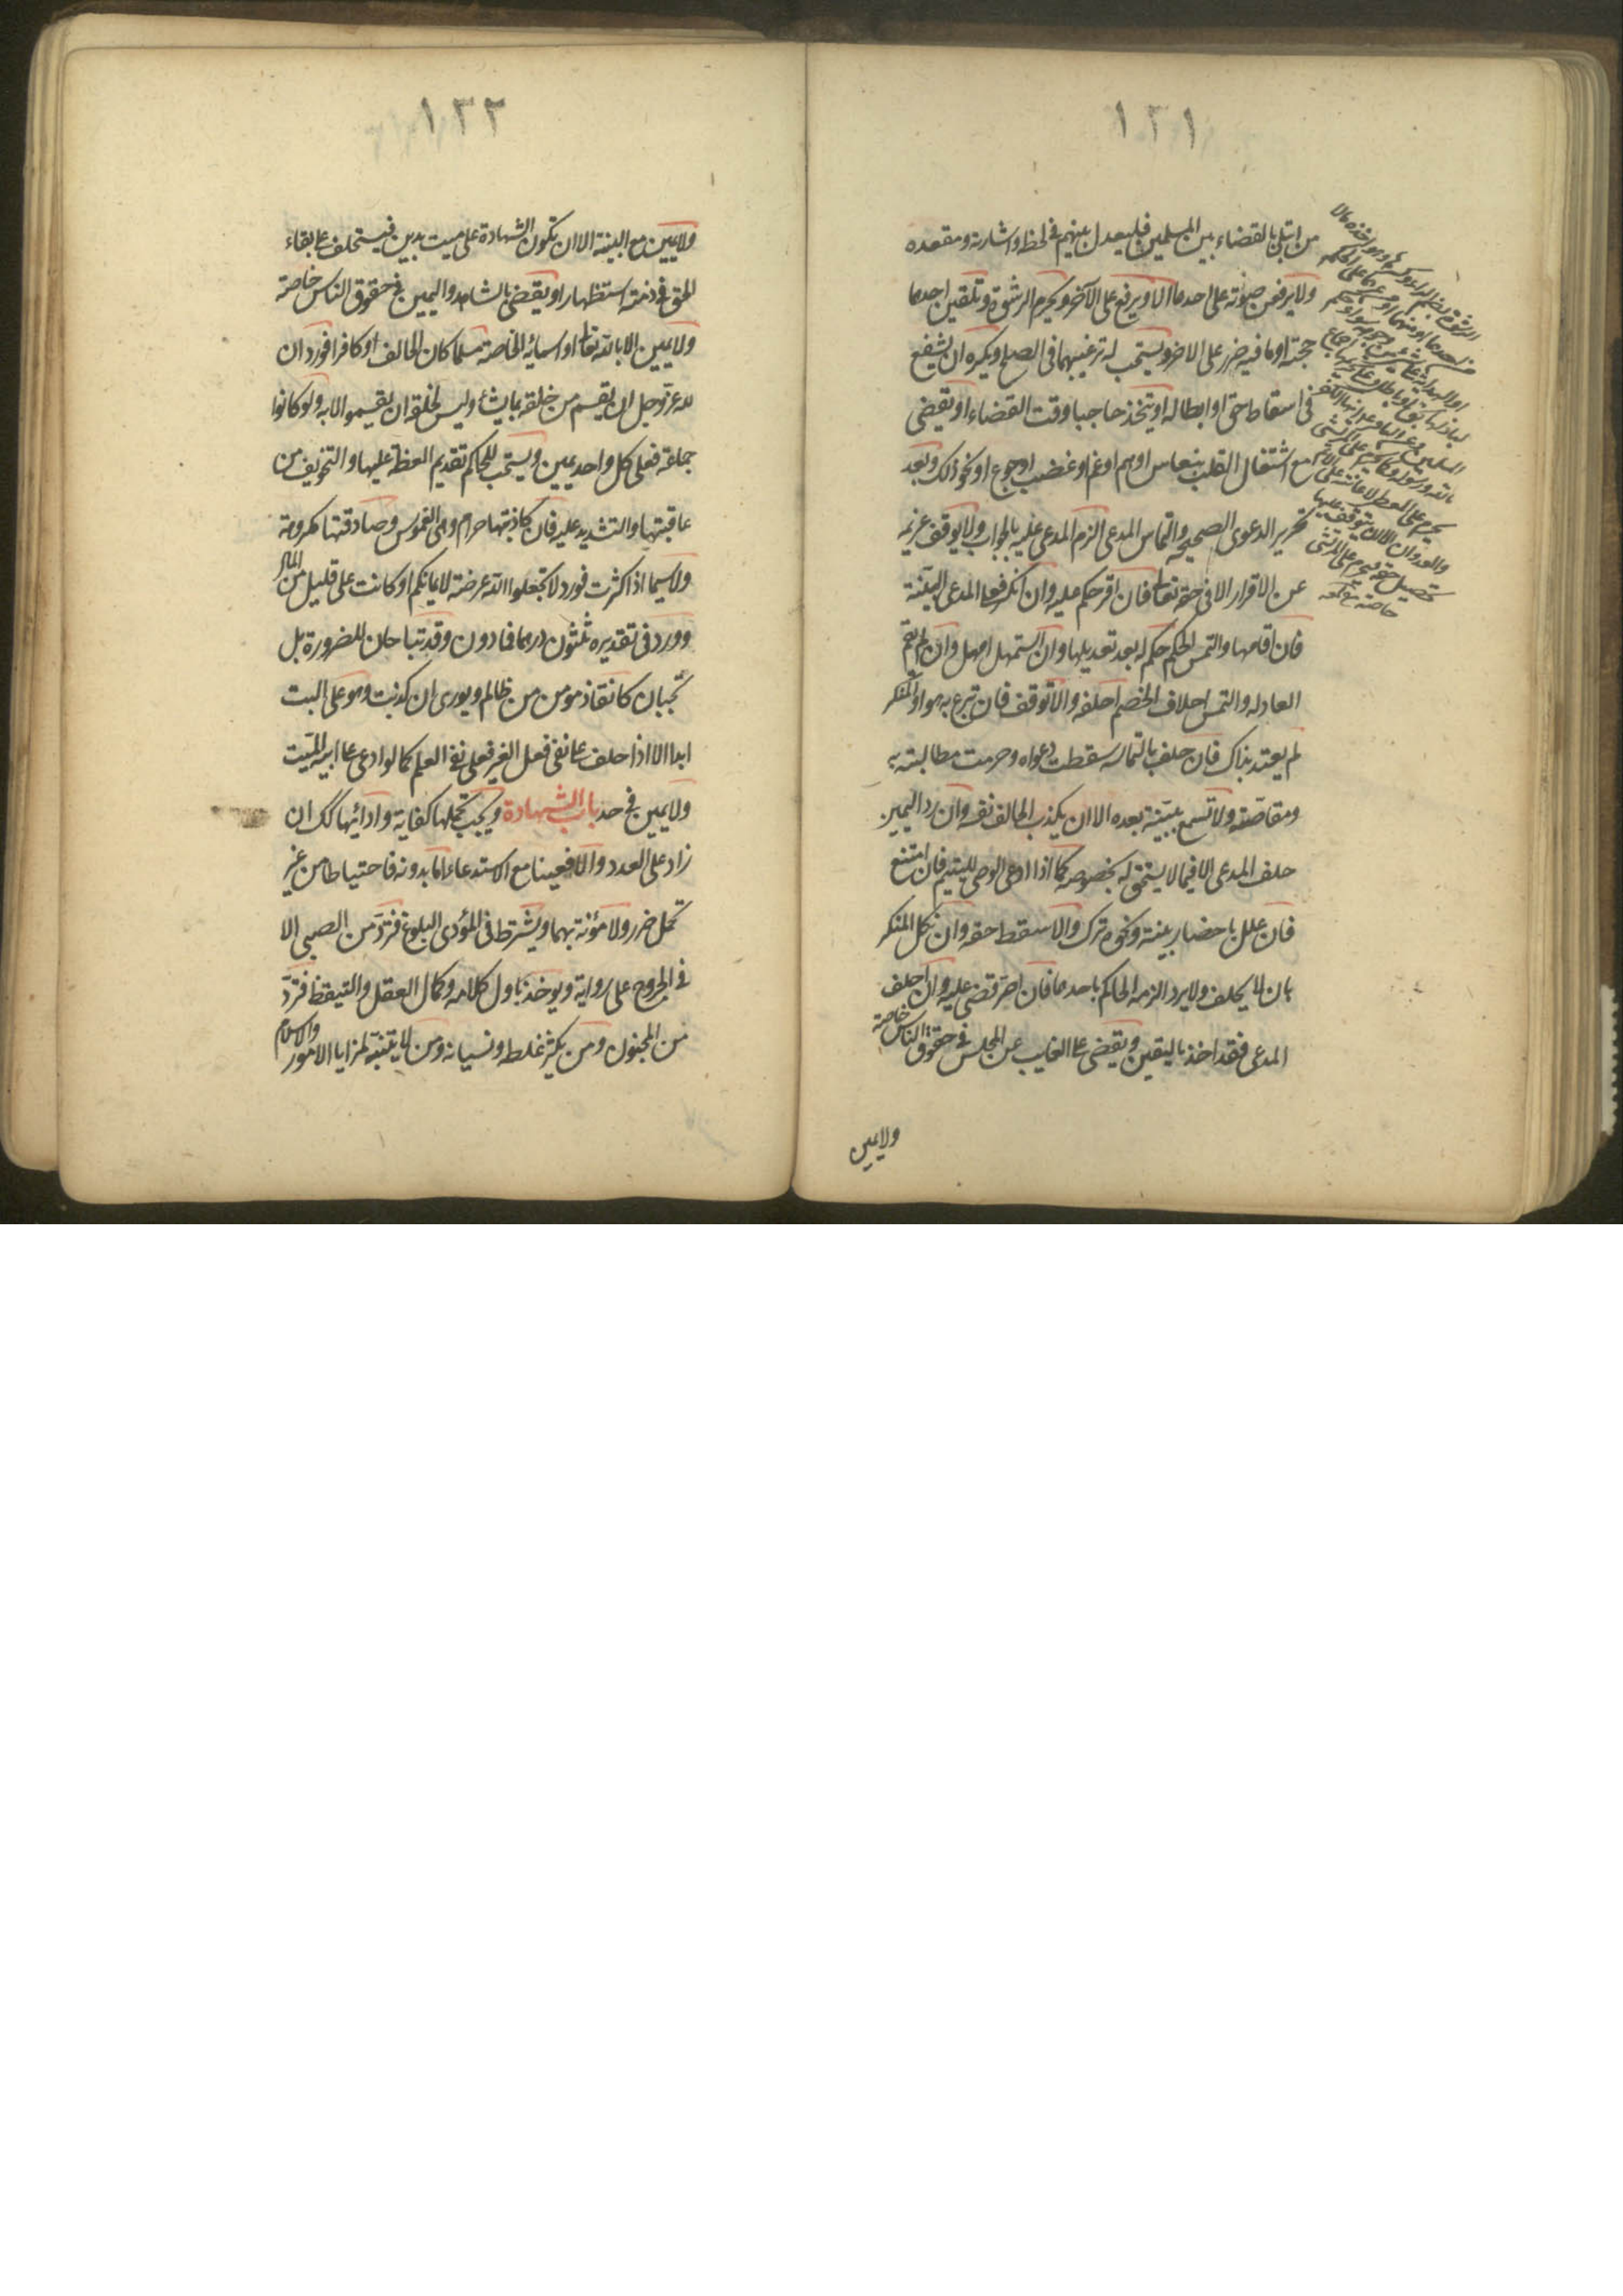 ١٢١
من ابتلى بالقضاء بين المسلمين فليعدل بينهم في لحظه واشارته ومقعده
ولا يرفعن صوته على احدهما الا ويرفع على الآخر ويحرم الرشوة وتلقين احدهما
حجته او ما فيه ضرر على الاخر ويستحب له ترغيبهما في الصلح ويكره ان يشفع
في اسقاط حق او ابطاله او يتخذ حاجبا وقت القضاء او يقضى
مع اشتغال القلب بنعاس او هم او غم او غضب او جوع او نحو ذلك وبعد
تحرير الدعوى الصحيحة والتماس المدعى الزم المدعى عليه بالجواب ولا يوقف غريمه
عن الاقرار الا في حقه تعا فان اقر حكم عليه وان انكر فعلى المدعى البينة
فان اقامها والتمس الحكم حكم له بعد تعديلها وان استمهل امهل وان لم يقم
العادله والتمس احلاف الخصم احلفه والا توقف فان تبرع به هو او المنكر
لم يعتد بذاك فان حلف بالتماسه سقطت دعواه وحرمت مطالبته به
ومقاصته ولا تسمع ببينة بعده الا ان يكذب الحالف نفسه وان رد اليمين
حلف المدعى الا فيما لا يستحق له بخصوصه كما اذا ادعى الوصى لليتيم فان امتنع
فان علل باحضار بينة ونحوه ترك والا سقط حقه وان نكل المنكر
بان لا يحلف ولا يرد الزمه الحاكم باحدهما فان اصر قضى عليه وان احلف
المدعى فقد اخذ باليقين ويقضى على الغايب عن المجلس في حقوق الناس خاصة
ولا يمين
١٢٢
ولا يمين مع البينة الا ان تكون الشهادة على ميت بدين فيستحلف على بقاء
الحق في ذمته استظهارا ويقضى بالشاهد واليمين في حقوق الناس خاصة
ولا يمين الا بالله تعا او اسمائه الخاصة مسلما كان الحالف او كافرا فورد ان
لله عز وجل ان يقسم من خلقه بما يشاء وليس لخلقه ان يقسموا الا به ولو كانوا
جماعة فعلى كل واحد يمين ويستحب للحاكم تقديم العظة عليها والتخويف من
عاقبتها والتشديد عليه فان كاذبتها حرام وهى الغموس وصادقتها مكروهة
ولا سيما اذا كثرت فورد لا تجعلوا الله عرضة لايمانكم او كانت على قليل من المال
وورد في تقديره ثلثون درهما فما دون وقد تباحان للضرورة بل
تجبان كانقاذ مومن من ظالم ويورى ان كذبت وهو على البت
ابدا الا اذا حلف على نفى فعل الغير فعلى نفى العلم كما لو ادعى على ابيه الميت
ولا يمين في حد باب الشهادة ويجب تحملها كفاية وادائها كك ان
زاد على العدد والا فعينا مع الاستدعاء اما بدونه فاحتياطا من غير
تحمل ضرر ولا مؤنة بهما ويشرط في المؤدى البلوغ فترد من الصبى الا
في الجروح على رواية ويوخذ باول كلامه وكمال العقل والتيقظ فترد
من المجنون ومن يكثر غلطه ونسيانه ومن لا يتنبه لمزايا الامور والاسلام